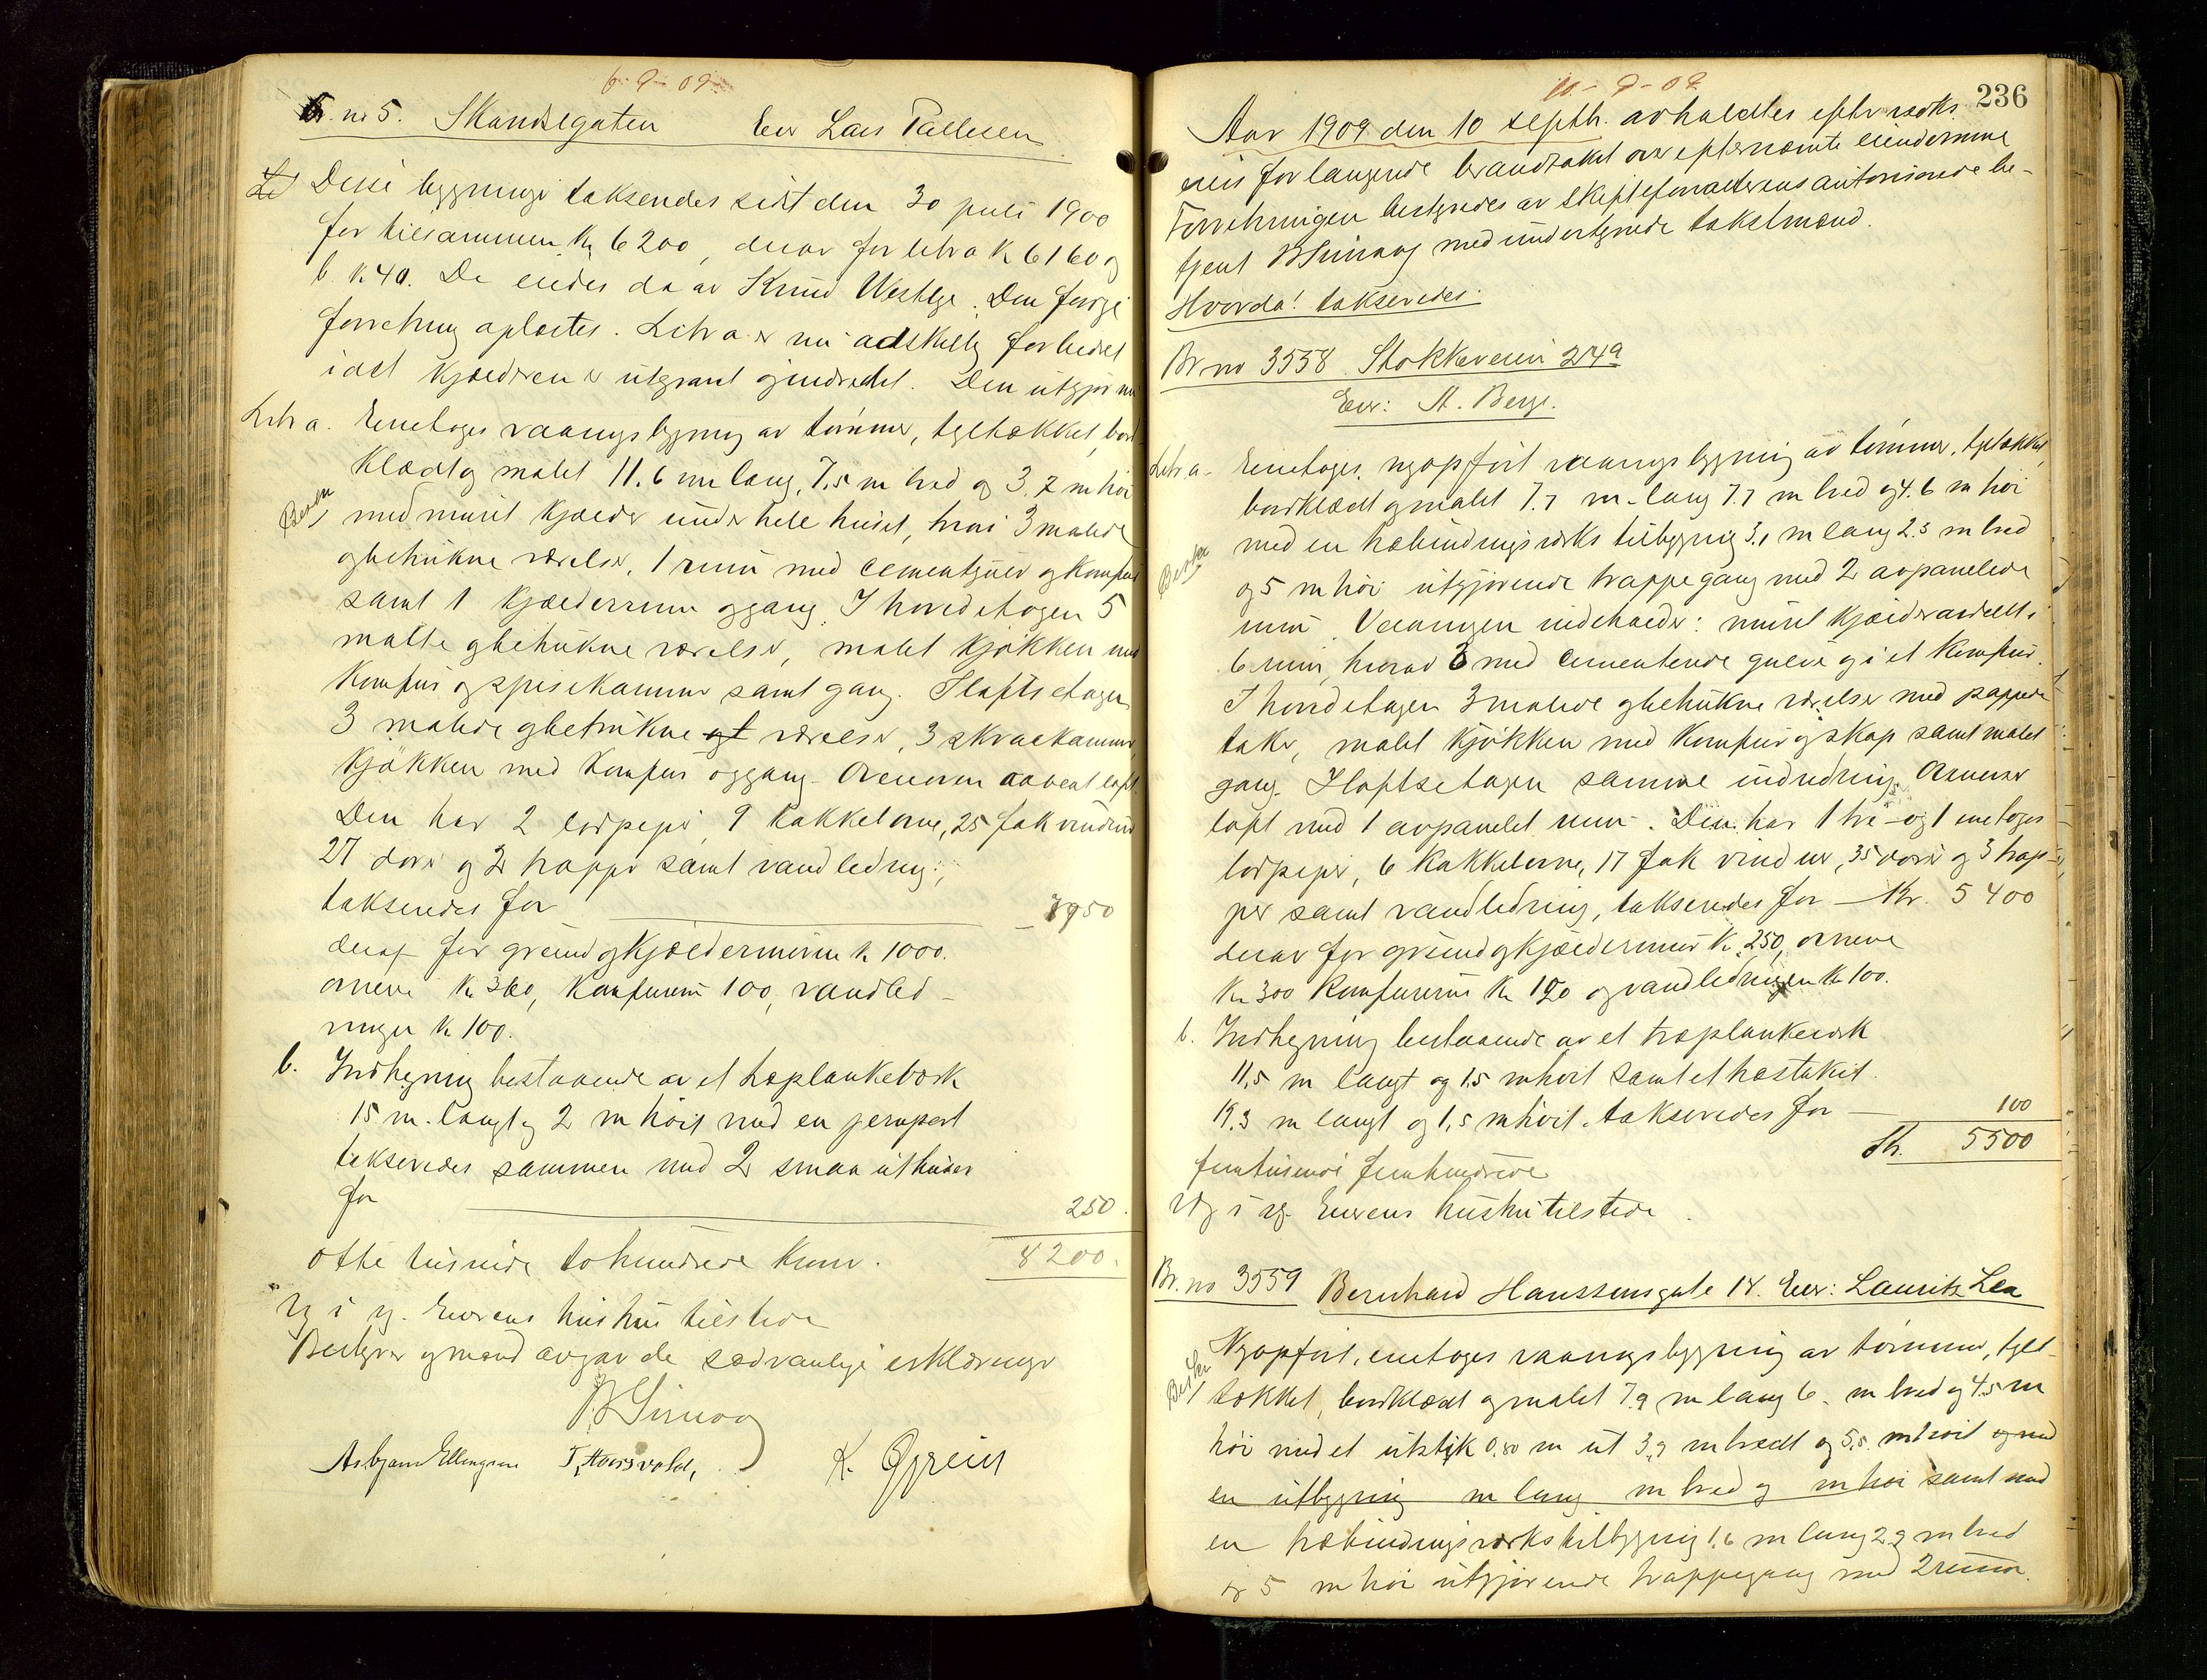 6-9-09
Br. no 5. Skandsegaten Eier Lars Pallesen
Disse bygninger takseredes sidst den 30 juli 1900
for tilsammen Kr 6200, derav for litra a Kr 6160 og
b. Kr 40. De eiedes da av Knud Westbø. Den forrige
forretning oplæstes. Litra a er nu adskillig forbedret
idet kjælderen er utgravet og indredet. Den utgjør nu
Litr a. Enetages vaaningsbygning av tømmer, tegltækket, bord
klædt og malet 11.6 m lang, 7,5 m bred og 3.7 m høi
med muret kjælder under hele huset, hvori 3 malede
og betrukne værelser, 1 rum med cementgulv og komfur
samt 1 kjælderrum og gang. I hovedetagen 5
malte og betrukne værelser, malet kjøkken med
komfur og spisekammer samt gang. I loftsetagen
3 malede og betrukne værelser, 3 skraakammer,
kjøkken med komfur og gang. Ovenover aabent loft.
Den har 2 lorpeper, 9 kakkelovne, 25 fak vinduer
27 dører og 2 trapper samt vandledning,
takseredes for 7950
deraf for grund og kjældermuren kr 1000.
ovnene Kr 360, komfurerne 100, vandled-
ningen kr 100.
b. Indhegning bestaaende av et træplankeværk
15 m. langt og 2 m høit med en jernport
takseredes sammen med 2 smaa uthuser
for 250.
otte tusinde tohundrede kroner. 8200.
Vg i vg. Eierens hustru tilstede
Bestyrer og mænd avgav de sædvanlige erklæringer
B Simog
Asbjørn Ellingsen T. Hoarsvold, K. Øgreid
10-9-09
236
Aar 1909 den 10 septbr. avholdtes efter vedk.
eiers forlangende brandtakst over efternævnte eiendomme
Forretningen bestyredes av skiftesforvalterens autoriserede be-
tjent B Simog med undertegnede takstmænd.
Hvorda! takseredes:
Br no 3558 Stokkaveien 249
Eier: A. Berge.
Litr a. Enetages, nyopført vaaningsbygning av tømmer, tegltækket,
bordklædt og malet 7.7 m. lang 7.7 m bred og 4.6 m høi
med en træbindingsverks tilbygning 3,1 m lang 2.3 m bred
og 5 m høi utgjørende trappegang med 2 avpanelede
rum. Vaaningen indeholder: muret kjælder avdelt i
6 rum, hvorav 3 med cementerede gulve og i et komfur.
I hovedetagen 3 malede og betrukne værelser med pappede
taker, malet kjøkken med komfur og skap samt malet
gang. I loftsetagen samme indredning. Ovenover
loft med 1 avpanelet rum. Den har 1 tre- og 1 enetages
lorpeper, 6 kakkelovne, 17 fak vinduer, 35 dører og 3 trap-
per samt vandledning, takseredes for Kr. 5400
derav for grund og kjældermur Kr. 250, ovnene
Kr 300 komfurerne Kr 120 og vandledningen Kr 100.
b. Indhegning bestaaende av et træplankeverk
11,5 m langt og 1,5 m høit samt et træstakit
19.3 m langt og 1,5 m høit. takseredes for 100
Kr. 5500
femtusinde femhundrede
Vg i vg. Eierens hustru tilstede.
Br. no 3559 Bernhard Hanssensgate 14. Eier: Laurits Lea
Nyopført, enetages vaaningsbygning av tømmer, tegl-
tækket, bordklædt og malet 7.9 m lang 6. m bred og 4.5 m
høi med et utstik 0.80 m ut 3,9 m bredt og 5,5. m høit og med
en utbygning m lang m bred og m høi samt med
en træbindingsverks tilbygning 1,6 m lang 2.9 m bred
og 5 m høi utgjørende trappegang med 2 rum.